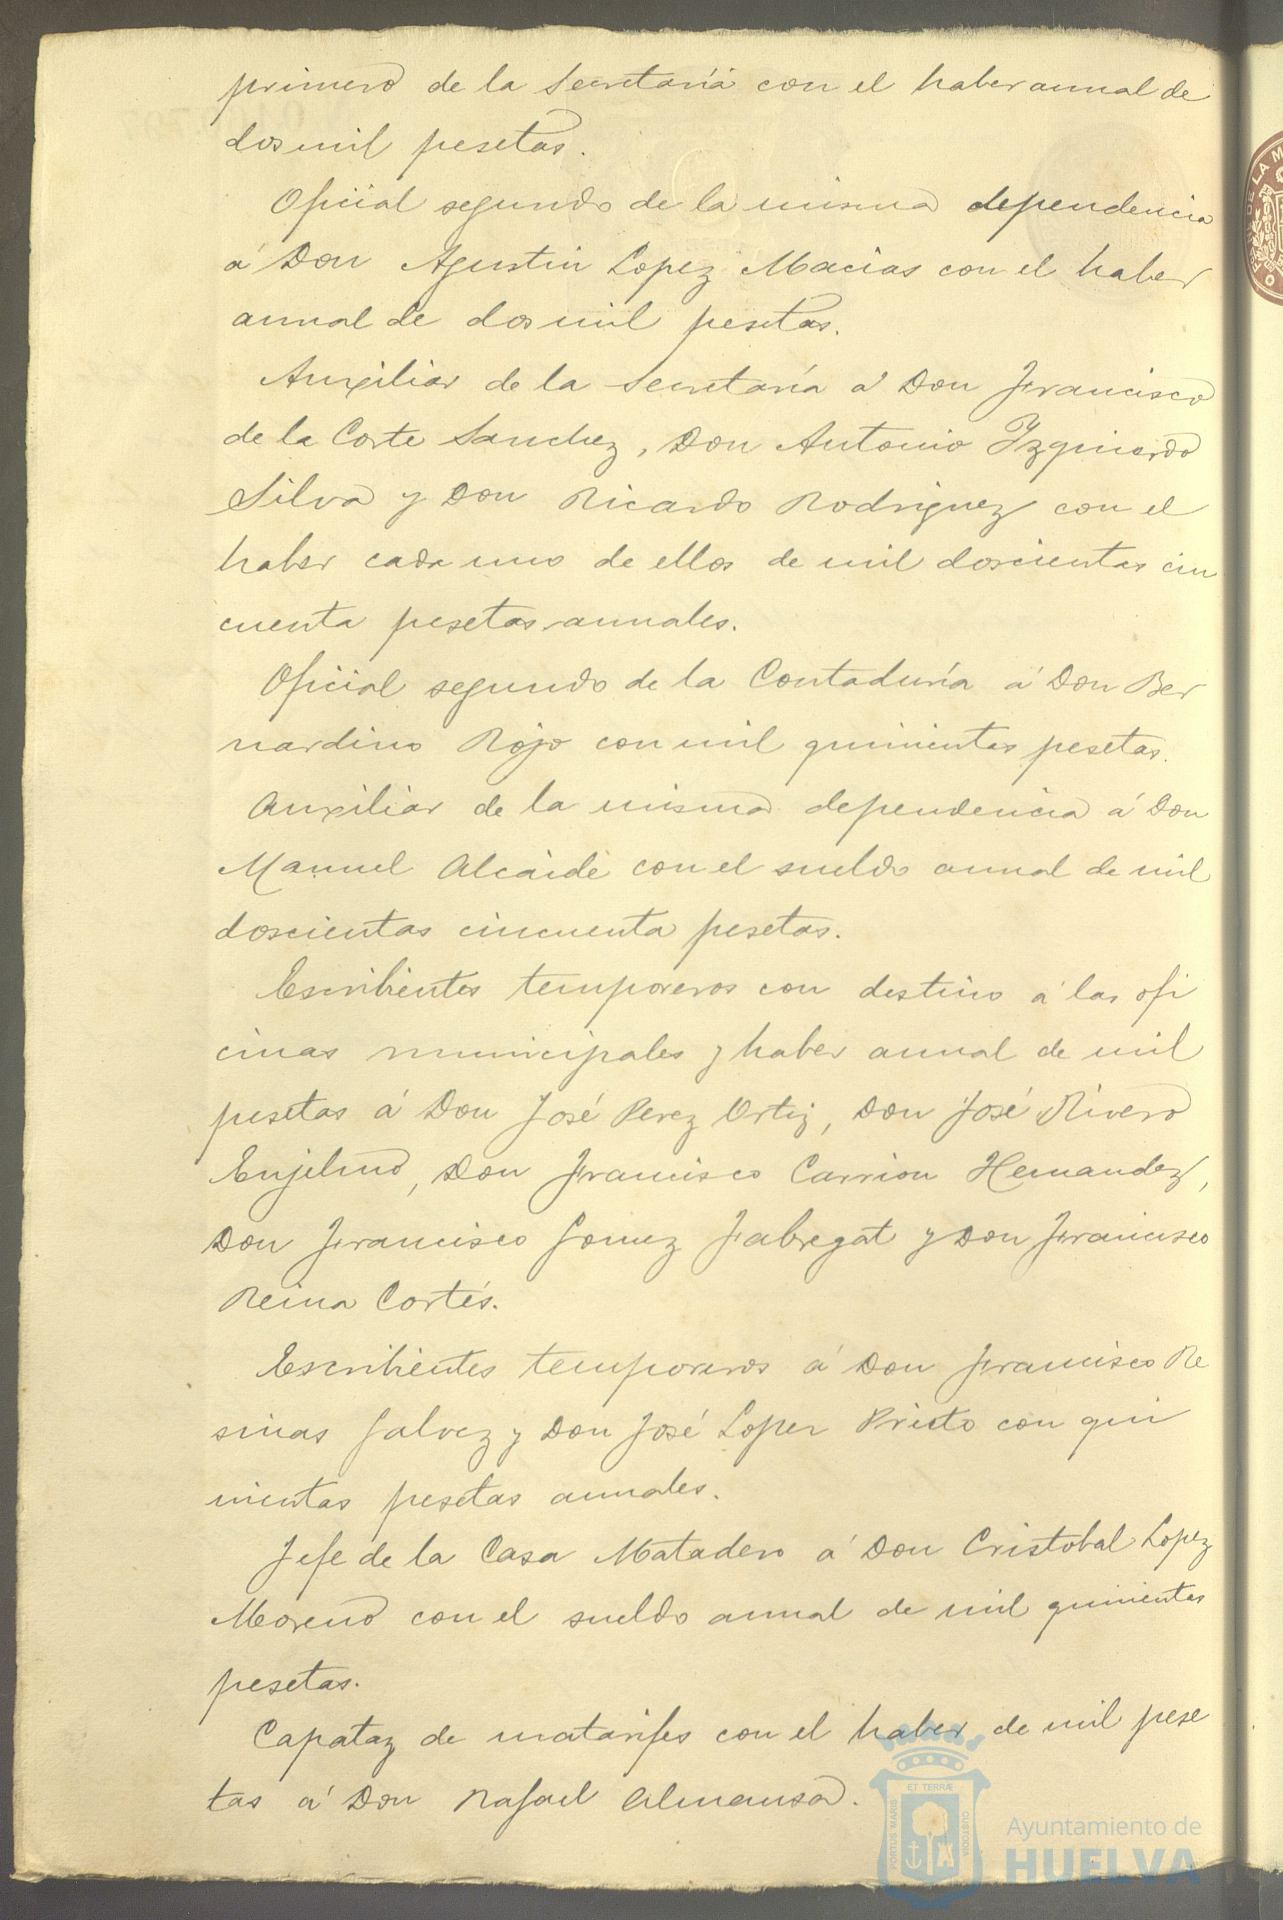 primero de la Secretaría con el haber anual de
dos mil pesetas.
Oficial segundo de la misma dependencia
á Don Agustin Lopez Macias con el haber
anual de dos mil pesetas.
Auxiliar de la Secretaría á Don Francisco
de la Corte Sanchez, Don Antonio Izquierdo
Silva y Don Ricardo Rodriguez con el
haber cada uno de ellos de mil doscientas cin
cuenta pesetas anuales.
Oficial segundo de la Contaduría á Don Ber
nardino Rojo con mil quinientas pesetas.
Auxiliar de la misma dependencia á Don
Manuel Alcaide con el sueldo anual de mil
doscientas cincuenta pesetas.
Escribientes temporeros con destino á las ofi
cinas municipales y haber anual de mil
pesetas á Don José Perez Ortiz, Don José Rivero
Don Francisco Carrion Hernandez,
Don Francisco Gomez Fabregat y Don Francisco
Reina Cortés.
Escribientes temporeros á Don Francisco Re
sinas Galvez y Don José Lopez Prieto con qui
nientas pesetas anuales.
Jefe de la Casa Matadero á Don Cristobal Lopez
Moreno con el sueldo anual de mil quinientas
pesetas.
Capataz de matarifes con el haber de mil pese
tas á Don Rafael Almansa.
ET TERRÆ
PORTUS MARIS
CUSTODIA
Ayuntamiento de
HUELVA
DE LA M